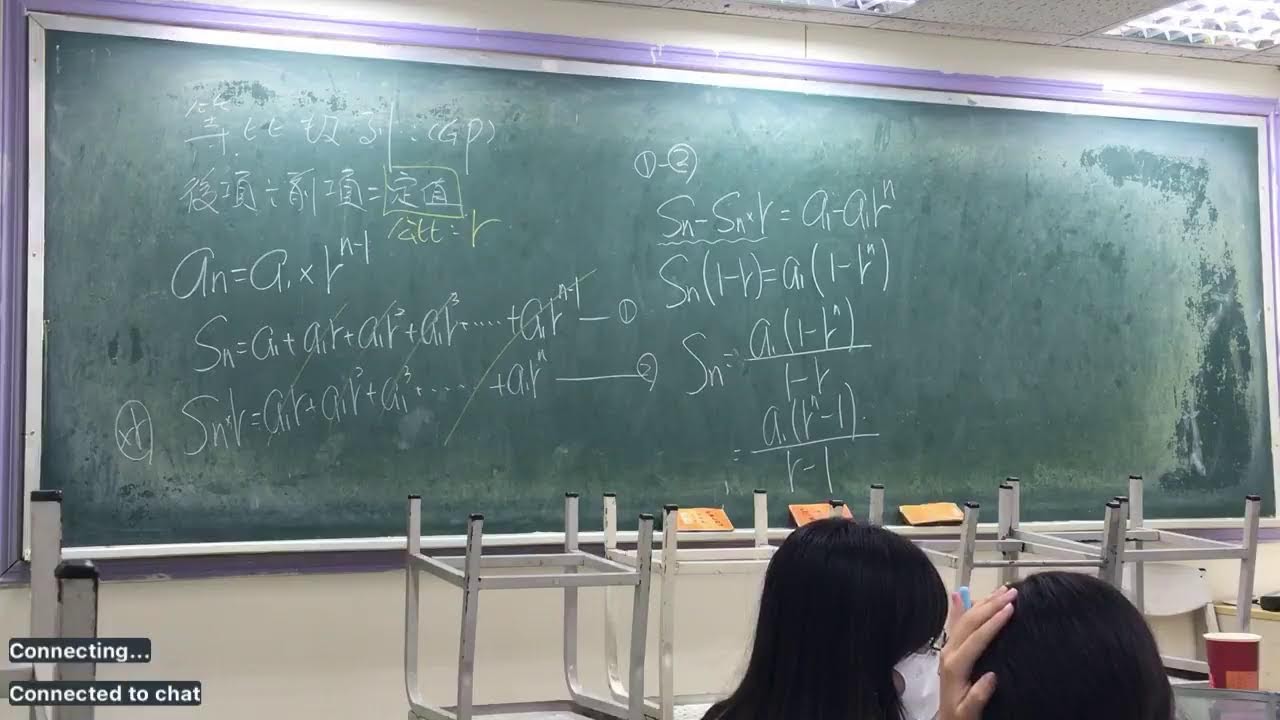 等比級列:(GP)
後項÷前項=定值
公比:r
an=a1×r^(n-1)
Sn=a1+a1r+a1r²+a1r³+....+a1r^(n-1) — ①
×r Sn×r=a1r+a1r²+a1³+.....+a1r^n — ②
①-②
Sn-Sn×r=a1-a1r^n
Sn(1-r)=a1(1-r^n)
Sn=a1(1-r^n)/(1-r)
=a1(r^n-1)/(r-1)
Connecting...
Connected to chat